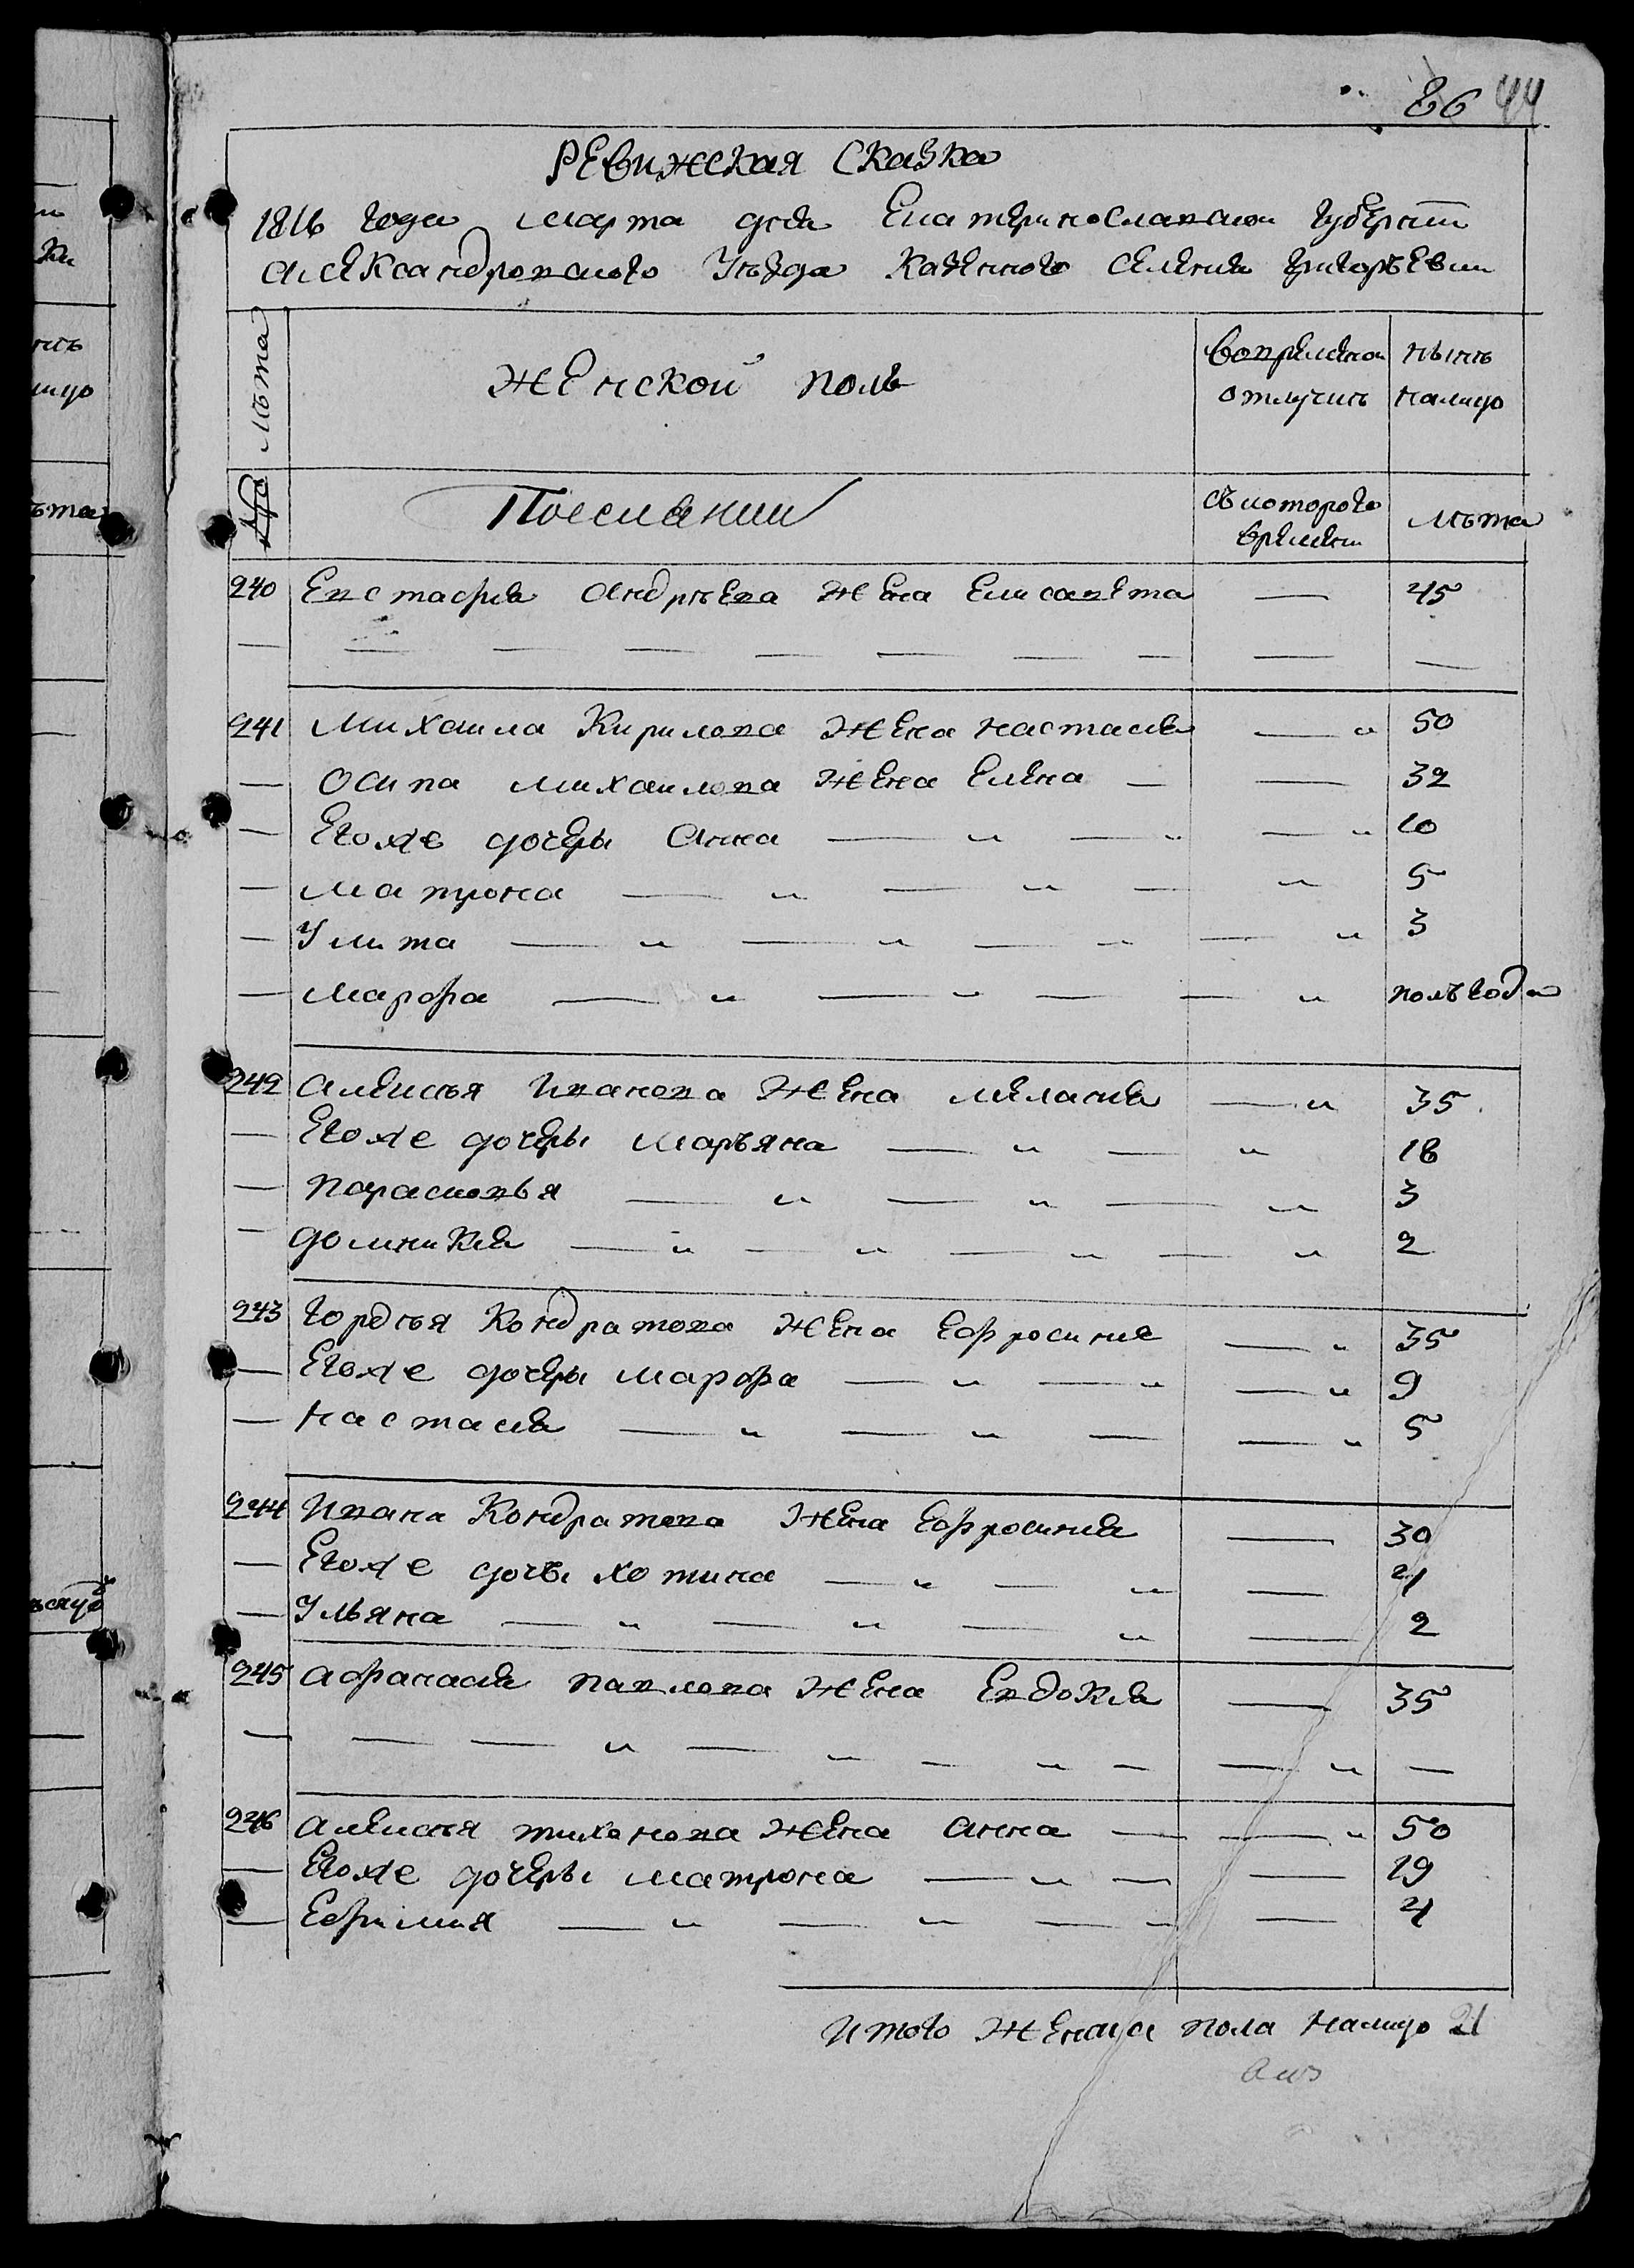 86 44
Ревижская Сказка
1816 года Марта дня Екатеринославской губернии
Александровского Уѣзда Казенного селения Григорьевки
Лѣта Женской полъ Вовременной отлучкѣ Нынѣ налицо
№ Поселянки Съ которого времени Лѣта
240 Евстафия Андрѣева жена Елисавета — 45
— — — — — — — — — —
241 Михаила Кирилова жена Настасия — „ 50
— Осипа Михаилова жена Елена — — 32
— Егоже дочеры Анна — „ — „ — „ 10
— Матрона — „ — „ — „ 5
— Улита — „ — „ — „ — „ 3
— Марфа — „ — „ — — „ полъ года
242 Алексѣя Иванова жена Мелания — „ 35
— Егоже дочеры Марьяна — „ — „ 18
— Парасковья — „ — „ — „ 3
— Домникия — „ — „ — „ — „ 2
243 Гордѣя Кондратова жена Ефросиние — „ 35
— Егоже дочеры Марфа — „ — „ — „ 9
— Настасия — „ — „ — — „ 5
244 Ивана Кондратова жена Ефросиния — 30
— Егоже дочъ Хотина — „ — „ — 4
— Ульяна — „ — „ — „ — 2
245 Афанасия Павлова жена Евдокия — 35
— — — „ — „ — „ — — „ —
246 Алексѣя Тихонова жена Анна — — „ 50
— Егоже дочеры Матрона — „ — — 19
— Ефимия — „ — „ — „ — 4
Итого женска пола налицо 21